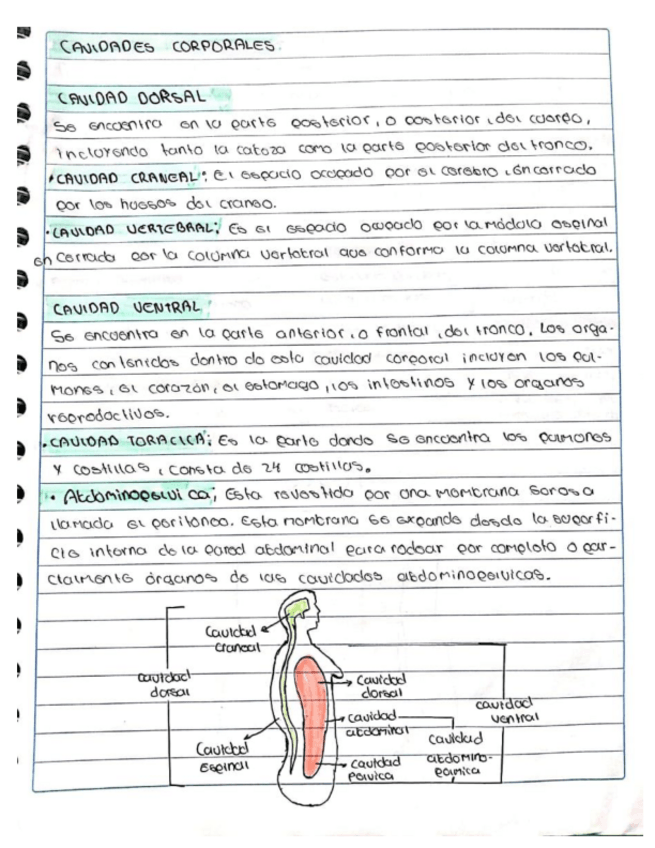 CAVIDADES CORPORALES.
CAVIDAD DORSAL
Se encuentra en la parte posterior, o posterior, del cuerpo,
incluyendo tanto la cabeza como la parte posterior del tronco.
•CAVIDAD CRANEAL: El espacio ocupado por el cerebro, encerrado
por los huesos del craneo.
•CAVIDAD VERTEBRAL; Es el espacio ocupado por la médula espinal
en cerrada por la columna vertebral que conforma la columna vertebral.
CAVIDAD VENTRAL
Se encuentra en la parte anterior, o frontal, del tronco. Los orga-
nos contenidos dentro de esta cavidad corporal incluyen los pul-
mones, el corazón, el estomago, los intestinos y los organos
reproductivos.
•CAVIDAD TORACICA; Es la parte donde se encuentra los pulmones
y costillas, consta de 24 costillas.
• Abdominopelvi ca; Esta revestida por una membrana serosa
llamada el peritoneo. Esta membrana se expande desde la superfi-
cie interna de la pared abdominal para rodear por completo o par-
cialmente órganos de las cavidades abdominopelvicas.
Cavidad
craneal
cavidad
dorsal
Cavidad
dorsal
cavidad
ventral
cavidad
abdominal
cavidad
abdomino-
pelvica
Cavidad
Espinal
cavidad
pelvica